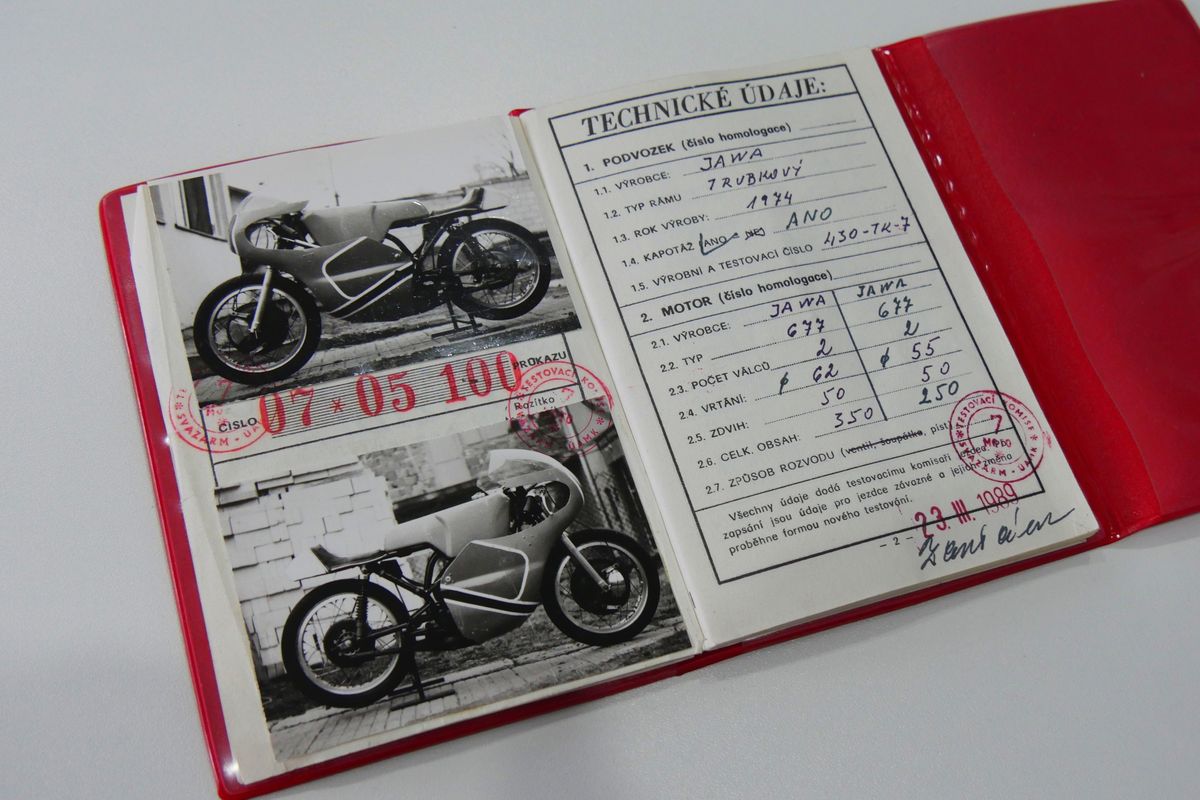 ČÍSLO
07 × 05 100
PRŮKAZU
Razítko
TECHNICKÉ ÚDAJE:
1. PODVOZEK (číslo homologace)
1.1. VÝROBCE: JAWA
1.2. TYP RÁMU TRUBKOVÝ
1.3. ROK VÝROBY: 1974
1.4. KAPOTÁŽ (ANO - NE) ANO
1.5. VÝROBNÍ A TESTOVACÍ ČÍSLO 430-TK-7
2. MOTOR (číslo homologace)
2.1. VÝROBCE: JAWA JAWA
2.2. TYP 677 677
2.3. POČET VÁLCŮ 2 2
2.4. VRTÁNÍ: ϕ 62 ϕ 55
2.5. ZDVIH: 50 50
2.6. CELK. OBSAH: 350 250
2.7. ZPŮSOB ROZVODU (ventil, šoupátko, píst)
TESTOVACÍ KOMISE
7
SVAZARM - ÚAMK
Všechny údaje dodá testovacímu komisaři jezdec.
zapsání jsou údaje pro jezdce závazné a jejich
proběhne formou nového testování.
- 2 -
23. III. 1989